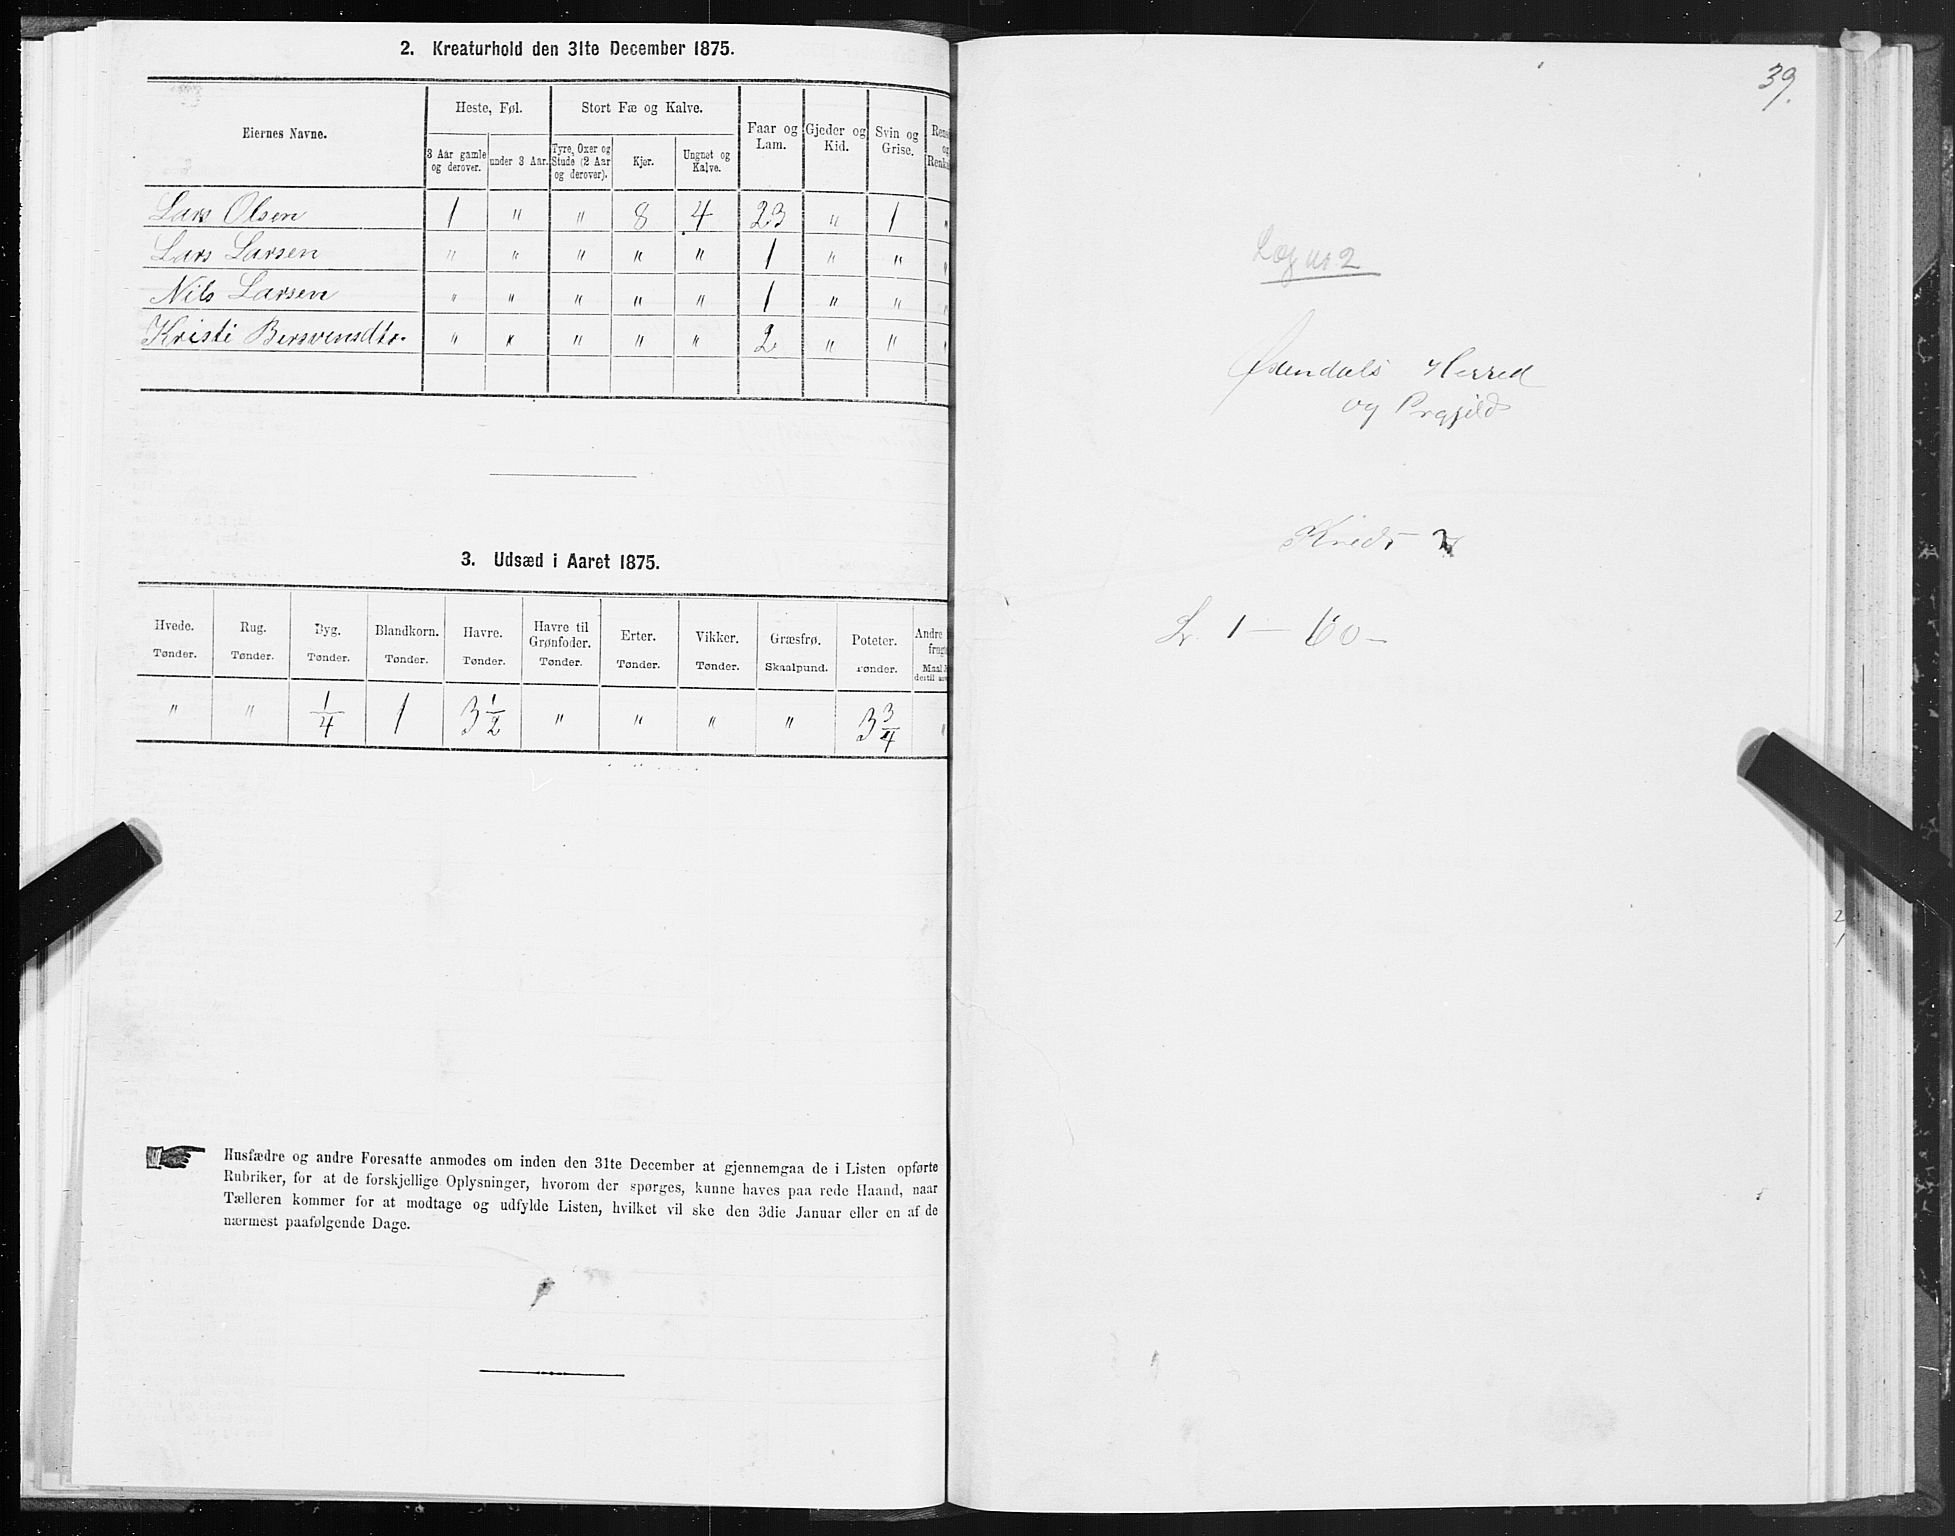 2. Kreaturhold den 31te December 1875.
Eiernes Navne.
Heste, Føl.
Stort Fæ og Kalve.
Faar og Lam.
Gjeder og Kid.
Svin og Grise.
3 Aar gamle og derover.
under 3 Aar.
Tyre, Oxer og Stude (2 Aar og derover).
Kjør.
Ungnøt og Kalve.
Lars Olsen 1 " " 8 4 23 " 1 "
Lars Larsen " " " " " 1 " " "
Nils Larsen " " " " " 1 " " "
Kristi Bersvensdtr. " " " " " 2 " " "
3. Udsæd i Aaret 1875.
Hvede. Rug. Byg. Blandkorn. Havre. Havre til Grønfoder. Erter. Vikker. Græsfrø. Poteter. Andre
Tønder. Tønder. Tønder. Tønder. Tønder. Tønder. Tønder. Tønder. Skaalpund. Tønder.
" " 1/4 1 3 1/2 " " " " 3 3/4 "
Husfædre og andre Foresatte anmodes om inden den 31te December at gjennemgaa de i Listen opførte
Rubriker, for at de forskjellige Oplysninger, hvorom der spørges, kunne haves paa rede Haand, naar
Tælleren kommer for at modtage og udfylde Listen, hvilket vil ske den 3die Januar eller en af de
nærmest paafølgende Dage.
39.
Læg nr 2
Herred
og Prgjeld
Kreds
L. 1 — 60 —